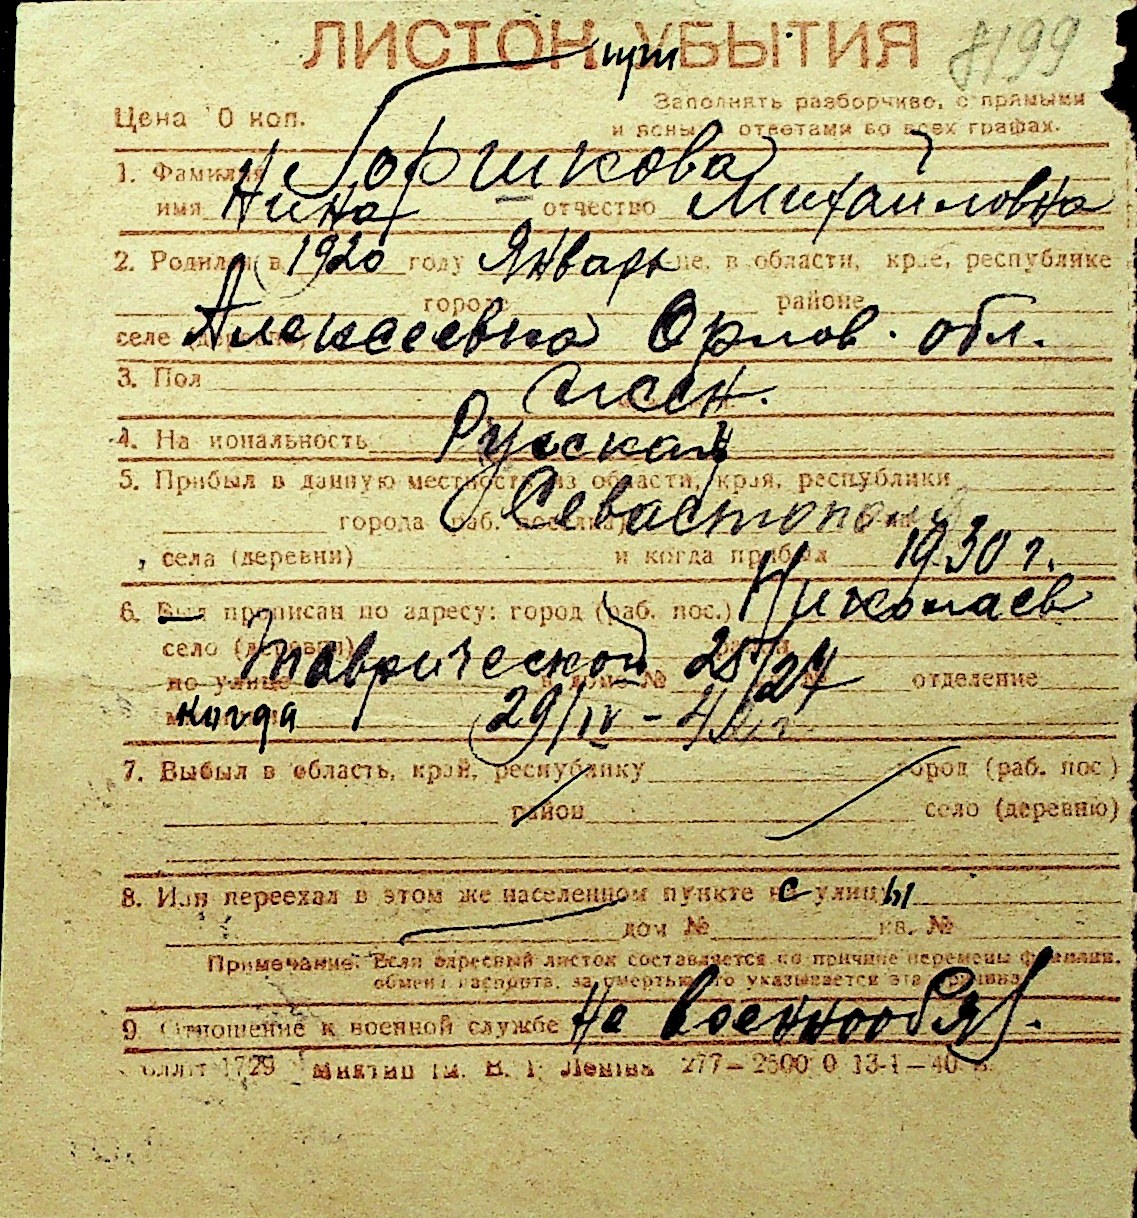 ЛИСТОК УБЫТИЯ
Цена 0 коп.
Заполнять разборчиво, с прямыми
и ясными ответами во всех графах.
1. Фамилия Горшкова
имя Нина отчество Михайловна
2. Родился в 1920 году Январь це, в области, крае, республике
городе районе
селе (деревне) Алексеевка Орлов. обл.
3. Пол жен.
4. Национальность Русская
5. Прибыл в данную местность из области, края, республики
города (раб. поселка) Севастополя
села (деревни) и когда прибыл 1930 г.
6. Был прописан по адресу: город (раб. пос.) Николаев
село (деревни) район
по улице Таврической в доме № 25/27 отделение
когда 29/IV-
7. Выбыл в область, край, республику город (раб. пос.)
район село (деревню)
8. Или переехал в этом же населенном пункте с улицы
дом № кв. №
Примечание. Если адресный листок составляется по причине перемены фамилии,
обмена паспорта, за смертью, то указывается эта причина.
9. Отношение к военной службе Не военнообяз.
1729 ім. В. І. Леніна 277—2500 0 13-1—40